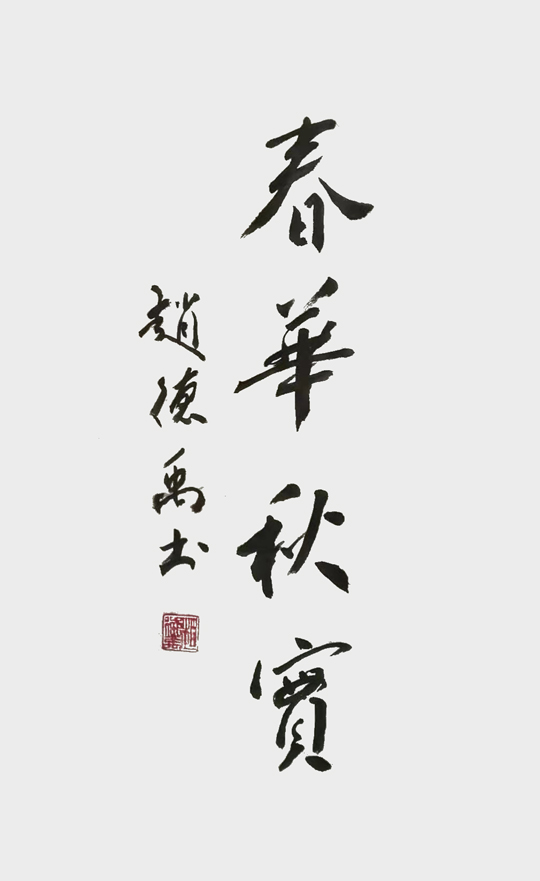 春華秋實
趙德禹书